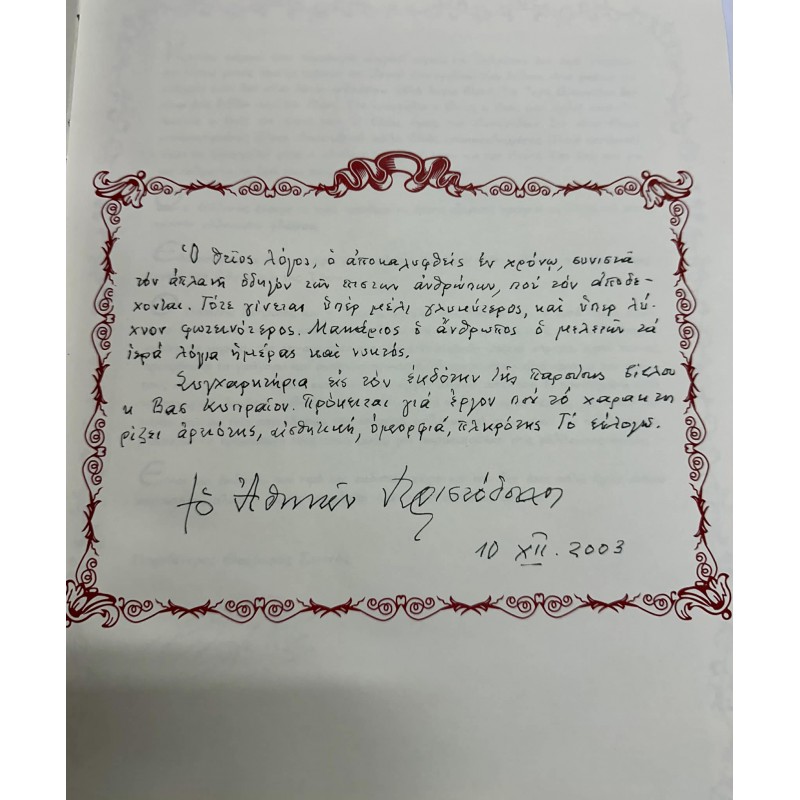 Ὁ θεῖος λόγος, ὁ ἀποκαλυφθείς ἐν χρόνῳ, συνιστᾶ
τόν ἀπλανῆ ὁδηγόν τῶν πιστῶν ἀνθρώπων, πού τόν ἀποδέ-
χονται. Τότε γίνεται ὑπέρ μέλι γλυκύτερος, καί ὑπέρ λύ-
χνον φωτεινότερος. Μακάριος ὁ ἄνθρωπος ὁ μελετῶν τά
ἱερά λόγια ἡμέρας καί νυκτός.
Συγχαρητήρια εἰς τόν ἐκδότην τῆς παρούσης Βίβλου
κ Βασ Κυπραῖον. Πρόκειται γιά ἔργον πού τό χαρακτη
ρίζει ἀρτιότης, αἰσθητική, ὀμορφιά, πληρότης Τό εὐλογῶ.
† Ὁ Ἀθηνῶν Χριστόδουλος
10 XII. 2003